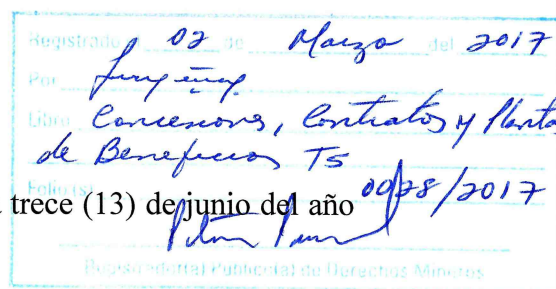 Registrado 02 de Marzo del 2017
Por
Libro Concesiones, Contratos y Planta
de Beneficios Ts
Folio(s) 0028/2017
trece (13) de junio del año
Registrador(a) Público(a) de Derechos Mineros